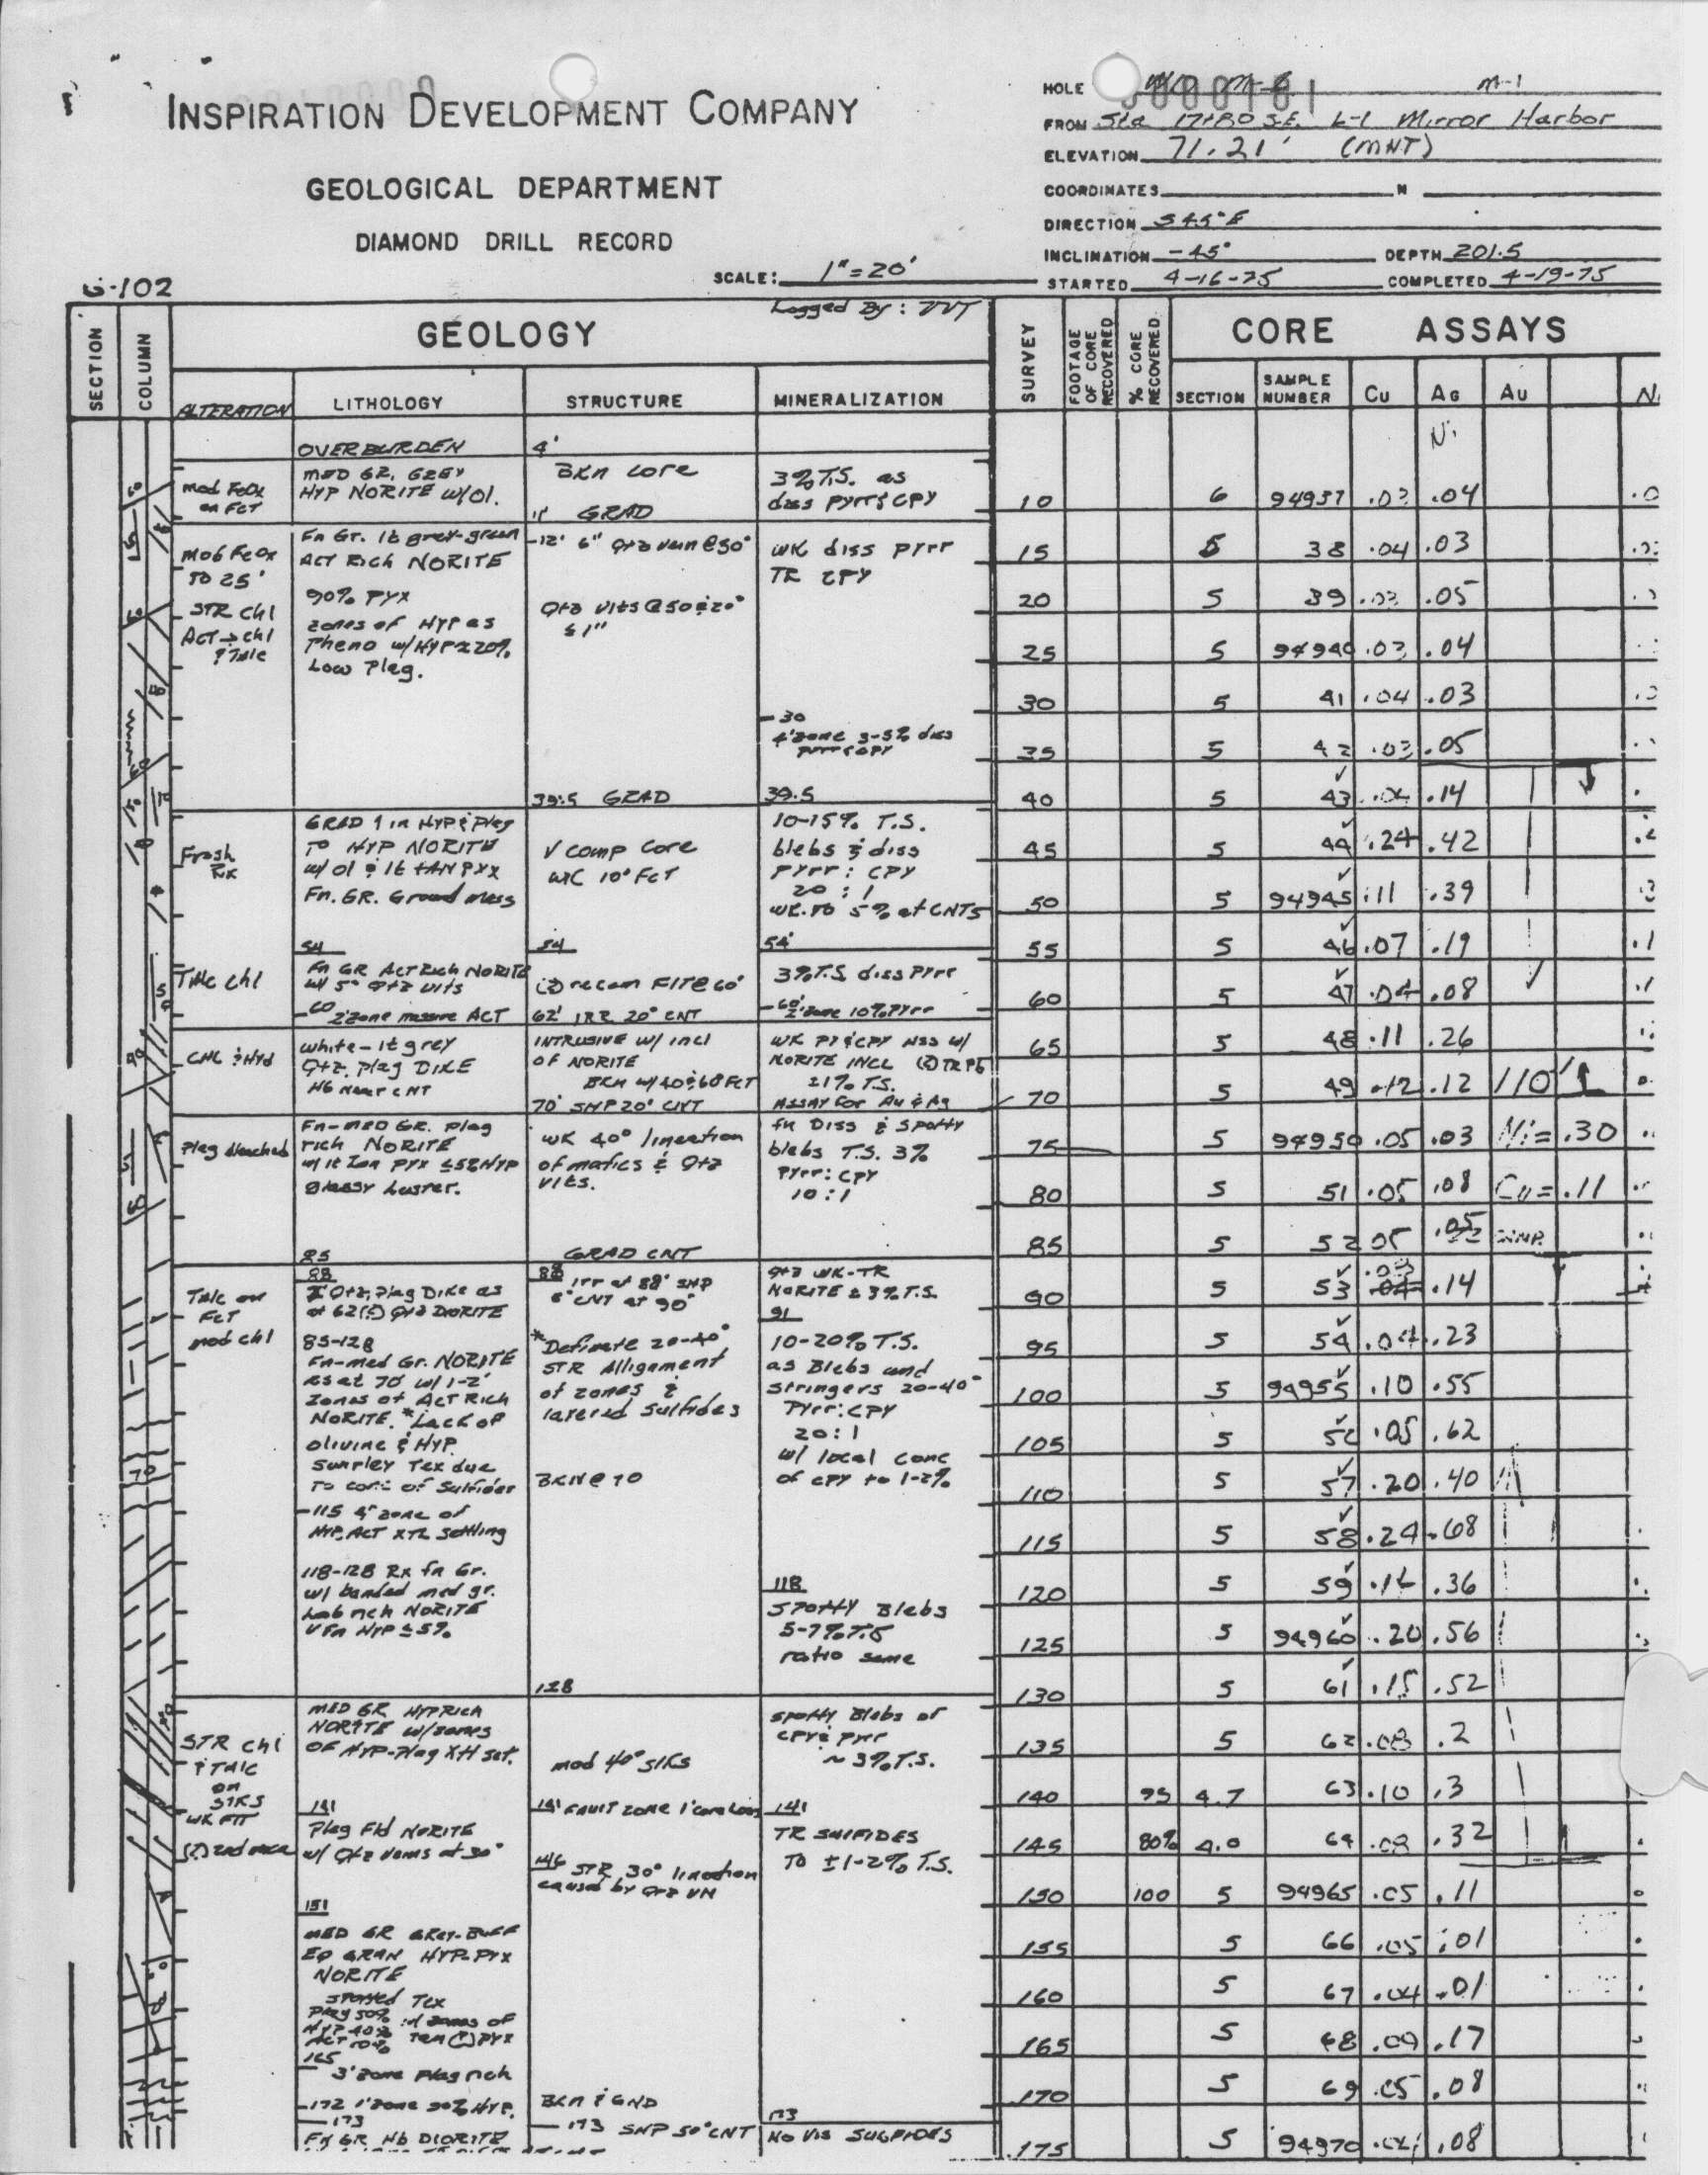 INSPIRATION DEVELOPMENT COMPANY
GEOLOGICAL DEPARTMENT
DIAMOND DRILL RECORD
SCALE: 1"=20'
G-102
HOLE M-1
FROM Sta 17+80 S.E. L-1 Mirror Harbor
ELEVATION 71.21' (MNT)
COORDINATES N
DIRECTION S45°E
INCLINATION -45° DEPTH 201.5
STARTED 4-16-75 COMPLETED 4-19-75
Logged By:
SECTION
COLUMN
GEOLOGY
SURVEY
FOOTAGE OF CORE RECOVERED
% CORE RECOVERED
CORE ASSAYS
ALTERATION LITHOLOGY STRUCTURE MINERALIZATION
SECTION SAMPLE NUMBER Cu Ag Au
Ni
OVERBURDEN 4'
mod FeOx on FCT
MED GR. GREY
HYP NORITE w/Ol.
BKN core
GRAD
3% T.S. as
diss pyrr & CPY
10 6 94937 .03 .04
mod FeOx
TO 25'
STR chl
ACT → chl
? Talc
Fn Gr. lt grey-green
ACT Rich NORITE
90% PYX
zones of HYP as
Pheno w/HYP ≈ 20%
Low Plag.
-12' 6" Qtz vein @ 50°
Qtz vlts @ 50 & 20°
≤ 1"
wk diss pyrr
TR CPY
15 5 38 .04 .03
20 5 39 .03 .05
25 5 94940 .03 .04
30 5 41 .04 .03
-30
4' zone 3-5% diss
pyrr CPY
35 5 42 .03 .05
39.5 GRAD
39.5
40 5 43 .04 .14
Fresh Rx
GRAD ↑ in HYP & Plag
TO HYP NORITE
w/ ol & lt TAN PYX
Fn. GR. Ground mass
V comp core
WK 10° FCT
10-15% T.S.
blebs & diss
PYrr : CPY
20 : 1
wk. to 5% at CNTS
45 5 44 .24 .42
50 5 94945 .11 .39
54 54 54'
55 5 46 .07 .19
Talc chl
Fn GR ACT Rich NORITE
w/ 5° Qtz vlts
-60 2' zone massive ACT
(?) recem FLT @ 60'
62' IRR 20° CNT
3% T.S. diss Pyrr
-60' 2' zone 10% Pyrr
60 5 47 .04 .08
CHL & Hyd
white-lt grey
Qtz. Plag DIKE
HB near CNT
INTRUSIVE w/ incl
OF NORITE
BKN w/ 40 & 60 FCT
70' SHP 20° CNT
WK PY & CPY ASS w/
NORITE INCL (?) TR Pb
±1% T.S.
ASSAY For Au & Ag
65 5 48 .11 .26
70 5 49 .12 .12 110'
Plag bleached
Fn-MED GR. Plag
rich NORITE
w/ lt Tan PYX ≤5% HYP
Glassy Luster.
WK 40° lineation
of mafics & Qtz
vlts.
fn Diss & Spotty
blebs T.S. 3%
PYrr: CPY
10 : 1
75 5 94950 .05 .03 Ni = .30
80 5 51 .05 .08 Cu = .11
85 GRAD CNT
85 5 52 .05 .05
Talc on
FCT
mod chl
88
Qtz, Plag Dike as
at 62 (?) Qtz DIORITE
88 Irr at 88' SHP
CNT at 90°
Qtz WK-TR
NORITE ± 3% T.S.
91
90 5 53 .03 .14
85-128
Fn-med Gr. NORITE
as at 70' w/ 1-2'
zones of ACT Rich
NORITE. *Lack of
olivine & HYP
Tex due
To conc of Sulfides
*Definite 20-40°
STR Allignment
of zones &
layered Sulfides
BKN @ 70
10-20% T.S.
as Blebs and
Stringers 20-40°
PYrr: CPY
20 : 1
w/ local conc
of cpy to 1-2%
95 5 54 .04 .23
100 5 94955 .10 .55
105 5 56 .05 .62
110 5 57 .20 .40
-115 4' zone of
HYP, ACT XTL settling
115 5 58 .24 .68
118-128 Rx fn Gr.
w/ banded med gr.
Lab rich NORITE
V Fn HYP ≤ 5%
118
SPOTTY Blebs
5-7% T.S
ratio same
120 5 59 .16 .36
125 5 94960 .20 .56
128
130 5 61 .15 .52
STR chl
& TALC
on
SLKS
WK FCT
MED GR HYP RICH
NORITE w/ zones
OF HYP-Plag Xtl set.
mod 40° SLKS
spotty Blebs of
CPY & pyrr
~ 3% T.S.
135 5 62 .08 .2
141
141 FAULT ZONE 1' core loss
141
140 95 4.7 63 .10 .3
Plag Fld NORITE
w/ Qtz veins at 30°
146 STR 30° lineation
caused by Qtz VN
TR SULFIDES
TO ±1-2% T.S.
145 80% 4.0 64 .08 .32
150 100 5 94965 .05 .11
151
MED GR GREY-BUFF
EQ GRAN HYP-PYX
NORITE
spotted Tex
Plag 50% w/ zones of
HYP 40% Tan (?) PYX
ACT 10%
165
3' zone Plag rich
-172 1' zone 90% HYP.
173
FN GR Hb DIORITE
155 5 66 .05 .01
160 5 67 .04 .01
165 5 68 .09 .17
BKN & GND
173 SHP 50° CNT
173
No VIS SULFIDES
170 5 69 .05 .08
175 5 94970 .04 .08